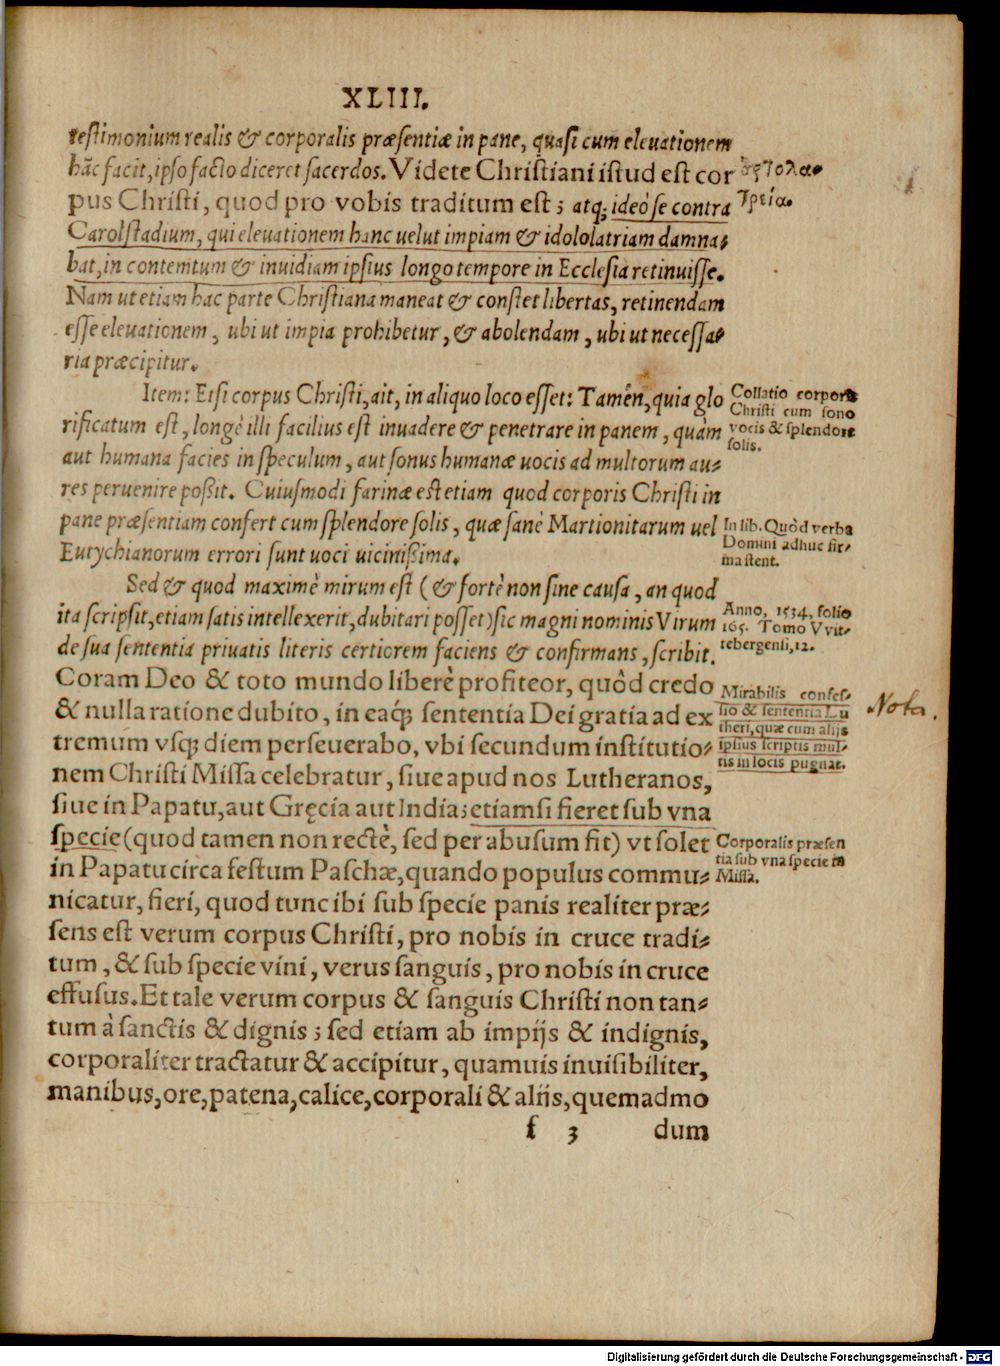 XLIII.
testimonium realis & corporalis præsentiæ in pane, quasi cum eleuationem
hāc facit, ipso facto diceret sacerdos. Videte Christiani istud est cor
pus Christi, quod pro vobis traditum est; atq; ideò se contra
Carolstadium, qui eleuationem hanc uelut impiam & idololatriam damna⸗
bat, in contemtum & inuidiam ipsius longo tempore in Ecclesia retinuisse.
Nam ut etiam hac parte Christiana maneat & constet libertas, retinendam
esse eleuationem, ubi ut impia prohibetur, & abolendam, ubi ut necessa⸗
ria præcipitur.
Item: Etsi corpus Christi, ait, in aliquo loco esset: Tamen, quia glo
rificatum est, longè illi facilius est inuadere & penetrare in panem, quàm
aut humana facies in speculum, aut sonus humanæ uocis ad multorum au⸗
res peruenire poßit. Cuiusmodi farinæ est etiam quod corporis Christi in
pane præsentiam confert cum splendore solis, quæ sanè Martionitarum uel
Eutychianorum errori sunt uoci uicinißima.
Sed & quod maximè mirum est (& fortè non sine causa, an quod
ita scripsit, etiam satis intellexerit, dubitari posset) sic magni nominis Virum
de sua sententia priuatis literis certiorem faciens & confirmans, scribit.
Coram Deo & toto mundo liberè profiteor, quòd credo
& nulla ratione dubito, in eaq́; sententia Dei gratia ad ex
tremum vsq; diem perseuerabo, vbi secundum institutio⸗
nem Christi Missa celebratur, siue apud nos Lutheranos,
siue in Papatu, aut Gręcia aut India; etiamsi fieret sub vna
specie (quod tamen non rectè, sed per abusum fit) vt solet
in Papatu circa festum Paschæ, quando populus commu⸗
nicatur, fieri, quod tunc ibi sub specie panis realiter præ⸗
sens est verum corpus Christi, pro nobis in cruce tradi⸗
tum, & sub specie vini, verus sanguis, pro nobis in cruce
effusus. Et tale verum corpus & sanguis Christi non tan⸗
tum à sanctis & dignis; sed etiam ab impijs & indignis,
corporaliter tractatur & accipitur, quamuis inuisibiliter,
manibus, ore, patena, calice, corporali & aliis, quemadmo
f 3 dum
ἀρτολα⸗
τρεία.
Collatio corporis
Christi cum sono
vocis & splendore
solis.
In lib. Quòd verba
Domini adhuc fir⸗
ma stent.
Anno, 1534, folio
165. Tomo Vvit⸗
tebergensi, 12.
Mirabilis confes⸗
sio & sententia Lu
theri, quæ cum alijs
ipsius scriptis mul⸗
tis in locis pugnat.
Nota.
Corporalis præsen
tia sub vna specie in
Missa.
Digitalisierung gefördert durch die Deutsche Forschungsgemeinschaft - DFG